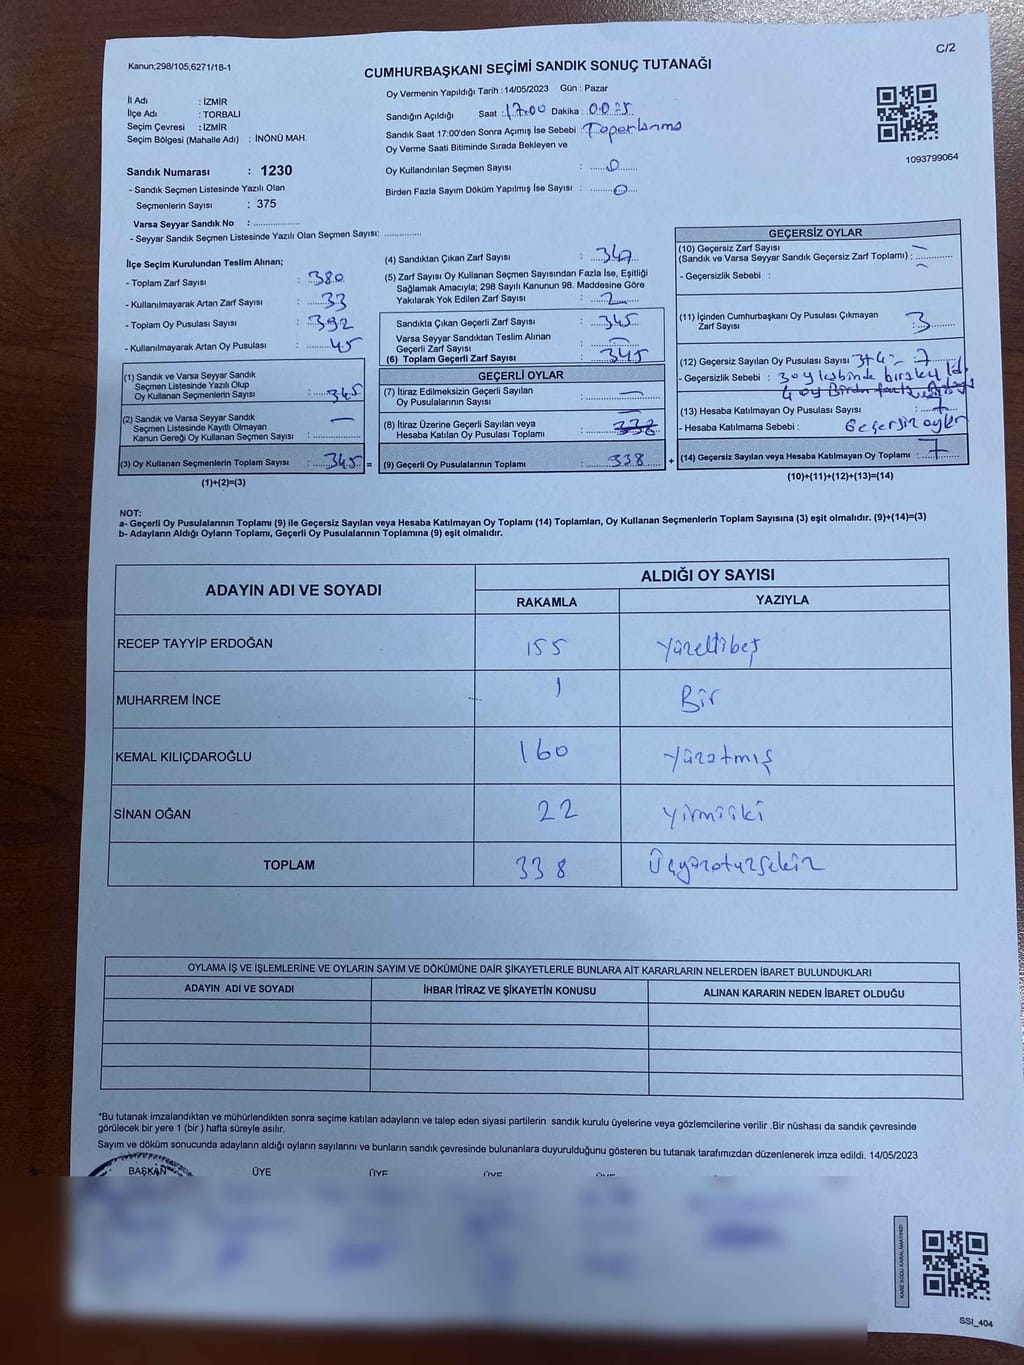 C/2
Kanun;298/105,6271/18-1
CUMHURBAŞKANI SEÇİMİ SANDIK SONUÇ TUTANAĞI
İl Adı : İZMİR
İlçe Adı : TORBALI
Seçim Çevresi : İZMİR
Seçim Bölgesi (Mahalle Adı) : İNÖNÜ MAH.
Oy Vermenin Yapıldığı Tarih : 14/05/2023 Gün : Pazar
Sandığın Açıldığı Saat : 17.00 Dakika :
Sandık Saat 17:00'den Sonra Açımış İse Sebebi : Toparlanma
Oy Verme Saati Bitiminde Sırada Bekleyen ve
Oy Kullandırılan Seçmen Sayısı : 0
Birden Fazla Sayım Döküm Yapılmış İse Sayısı : 0
1093799064
Sandık Numarası : 1230
- Sandık Seçmen Listesinde Yazılı Olan
Seçmenlerin Sayısı : 375
Varsa Seyyar Sandık No :
- Seyyar Sandık Seçmen Listesinde Yazılı Olan Seçmen Sayısı:
İlçe Seçim Kurulundan Teslim Alınan;
- Toplam Zarf Sayısı : 380
- Kullanılmayarak Artan Zarf Sayısı : 33
- Toplam Oy Pusulası Sayısı : 392
- Kullanılmayarak Artan Oy Pusulası : 45
(1) Sandık ve Varsa Seyyar Sandık
Seçmen Listesinde Yazılı Olup
Oy Kullanan Seçmenlerin Sayısı : 345
(2) Sandık ve Varsa Seyyar Sandık
Seçmen Listesinde Kayıtlı Olmayan
Kanun Gereği Oy Kullanan Seçmen Sayısı : —
(3) Oy Kullanan Seçmenlerin Toplam Sayısı : 345 =
(1)+(2)=(3)
(4) Sandıktan Çıkan Zarf Sayısı : 347
(5) Zarf Sayısı Oy Kullanan Seçmen Sayısından Fazla İse, Eşitliği
Sağlamak Amacıyla; 298 Sayılı Kanunun 98. Maddesine Göre
Yakılarak Yok Edilen Zarf Sayısı : 2
Sandıkta Çıkan Geçerli Zarf Sayısı : 345
Varsa Seyyar Sandıktan Teslim Alınan
Geçerli Zarf Sayısı : —
(6) Toplam Geçerli Zarf Sayısı : 345
GEÇERLİ OYLAR
(7) İtiraz Edilmeksizin Geçerli Sayılan
Oy Pusulalarının Sayısı : —
(8) İtiraz Üzerine Geçerli Sayılan veya
Hesaba Katılan Oy Pusulası Toplamı : 338
(9) Geçerli Oy Pusulalarının Toplamı : 338 +
GEÇERSİZ OYLAR
(10) Geçersiz Zarf Sayısı
(Sandık ve Varsa Seyyar Sandık Geçersiz Zarf Toplamı) : —
- Geçersizlik Sebebi :
(11) İçinden Cumhurbaşkanı Oy Pusulası Çıkmayan
Zarf Sayısı 3
(12) Geçersiz Sayılan Oy Pusulası Sayısı 3+4= 7
- Geçersizlik Sebebi : 3 oy
4 oy Birden fazla
(13) Hesaba Katılmayan Oy Pusulası Sayısı : 7
- Hesaba Katılmama Sebebi : Geçersiz oylar
(14) Geçersiz Sayılan veya Hesaba Katılmayan Oy Toplamı : 7
(10)+(11)+(12)+(13)=(14)
NOT:
a- Geçerli Oy Pusulalarının Toplamı (9) ile Geçersiz Sayılan veya Hesaba Katılmayan Oy Toplamı (14) Toplamları, Oy Kullanan Seçmenlerin Toplam Sayısına (3) eşit olmalıdır. (9)+(14)=(3)
b- Adayların Aldığı Oyların Toplamı, Geçerli Oy Pusulalarının Toplamına (9) eşit olmalıdır.
ADAYIN ADI VE SOYADI ALDIĞI OY SAYISI
RAKAMLA YAZIYLA
RECEP TAYYİP ERDOĞAN 155 Yüzellibeş
MUHARREM İNCE 1 Bir
KEMAL KILIÇDAROĞLU 160 Yüzatmış
SİNAN OĞAN 22 Yirmiiki
TOPLAM 338 Üçyüzotuzsekiz
OYLAMA İŞ VE İŞLEMLERİNE VE OYLARIN SAYIM VE DÖKÜMÜNE DAİR ŞİKAYETLERLE BUNLARA AİT KARARLARIN NELERDEN İBARET BULUNDUKLARI
ADAYIN ADI VE SOYADI İHBAR İTİRAZ VE ŞİKAYETİN KONUSU ALINAN KARARIN NEDEN İBARET OLDUĞU
*Bu tutanak imzalandıktan ve mühürlendikten sonra seçime katılan adayların ve talep eden siyasi partilerin sandık kurulu üyelerine veya gözlemcilerine verilir .Bir nüshası da sandık çevresinde
görülecek bir yere 1 (bir ) hafta süreyle asılır.
Sayım ve döküm sonucunda adayların aldığı oyların sayılarını ve bunların sandık çevresinde bulunanlara duyurulduğunu gösteren bu tutanak tarafımızdan düzenlenerek imza edildi. 14/05/2023
BAŞKAN ÜYE ÜYE ÜYE
KARE KODU KARALAMAYINIZ!
SSI_404